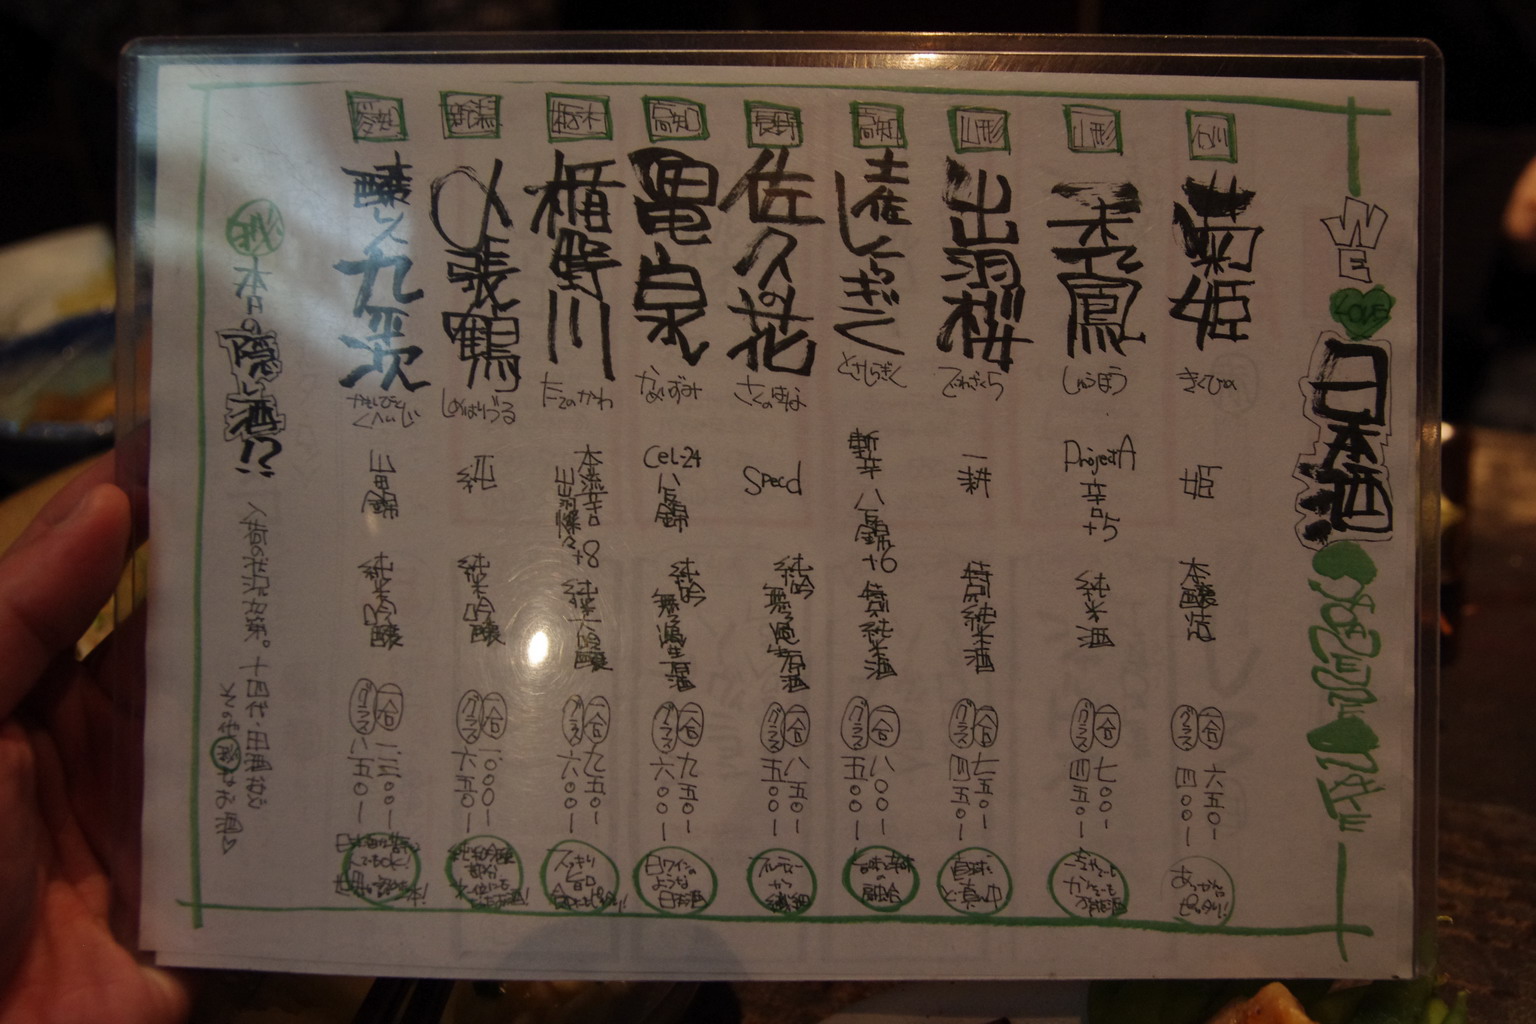 WE LOVE 日本酒
石川
菊姫
きくひめ
姫
本醸造
一合 六五〇ー
グラス 四〇〇ー
山形
秀鳳
しゅうほう
ProjectA
辛口+5
純米酒
一合 七〇〇ー
グラス 四五〇ー
山形
出羽桜
でわざくら
一耕
特別純米酒
一合 七五〇ー
グラス 四五〇ー
直球
ど真ん中
高知
土佐しらぎく
とさしらぎく
斬辛 八反錦+6
特別純米酒
一合 八〇〇ー
グラス 五〇〇ー
長野
佐久の花
さくのはな
Spec d
純吟
無ろ過生原酒
一合 八五〇ー
グラス 五〇〇ー
高知
亀泉
かめいずみ
Cel-24
八反錦
純吟
無ろ過生原酒
一合 九五〇ー
グラス 六〇〇ー
白ワインの
ような
日本酒
栃木
楯野川
たてのかわ
本流辛口
出羽燦々+8
純米大吟醸
一合 九五〇ー
グラス 六〇〇ー
スッキリ
〆張鶴
しめはりづる
純
純米吟醸
一合 一〇〇〇ー
グラス 六五〇ー
愛知
醸し人九平次
かもしびと
くへいじ
山田錦
純米吟醸
一合 一三〇〇ー
グラス 八五〇ー
秘 本日の隠し酒!?
入荷の状況次第。十四代・田酒など